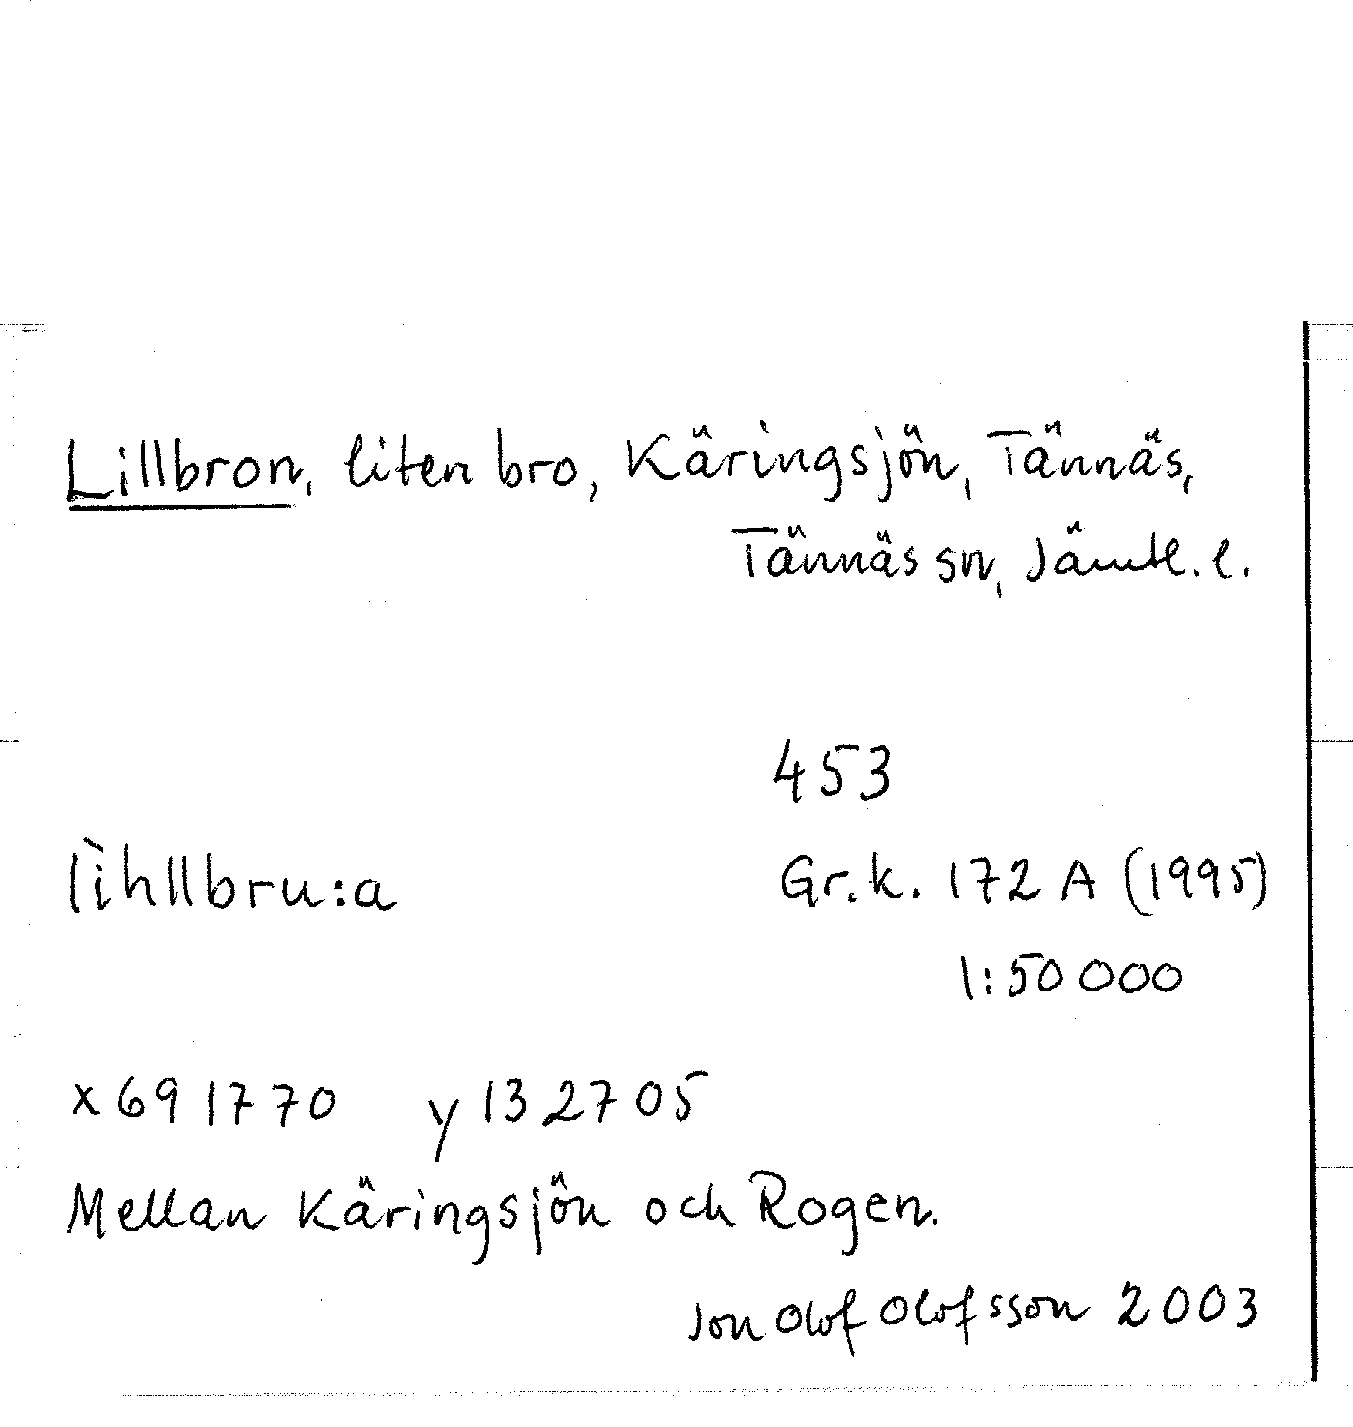 Lillbron, liten bro, Käringsjön, Tännäs,
Tännäs sn, Jämtl. l.
453
lìhllbru:a
Gr.k. 172 A (1995)
1:50 000
x 691770 y 132705
Mellan Käringsjön och Rogen.
Jon Olof Olofsson 2003